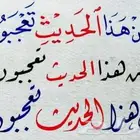 ن هَذَا الحَدِيْثِ تَعْجَبُو
ن هذا الحديث تعجبون
هذا الحديث تعجبو